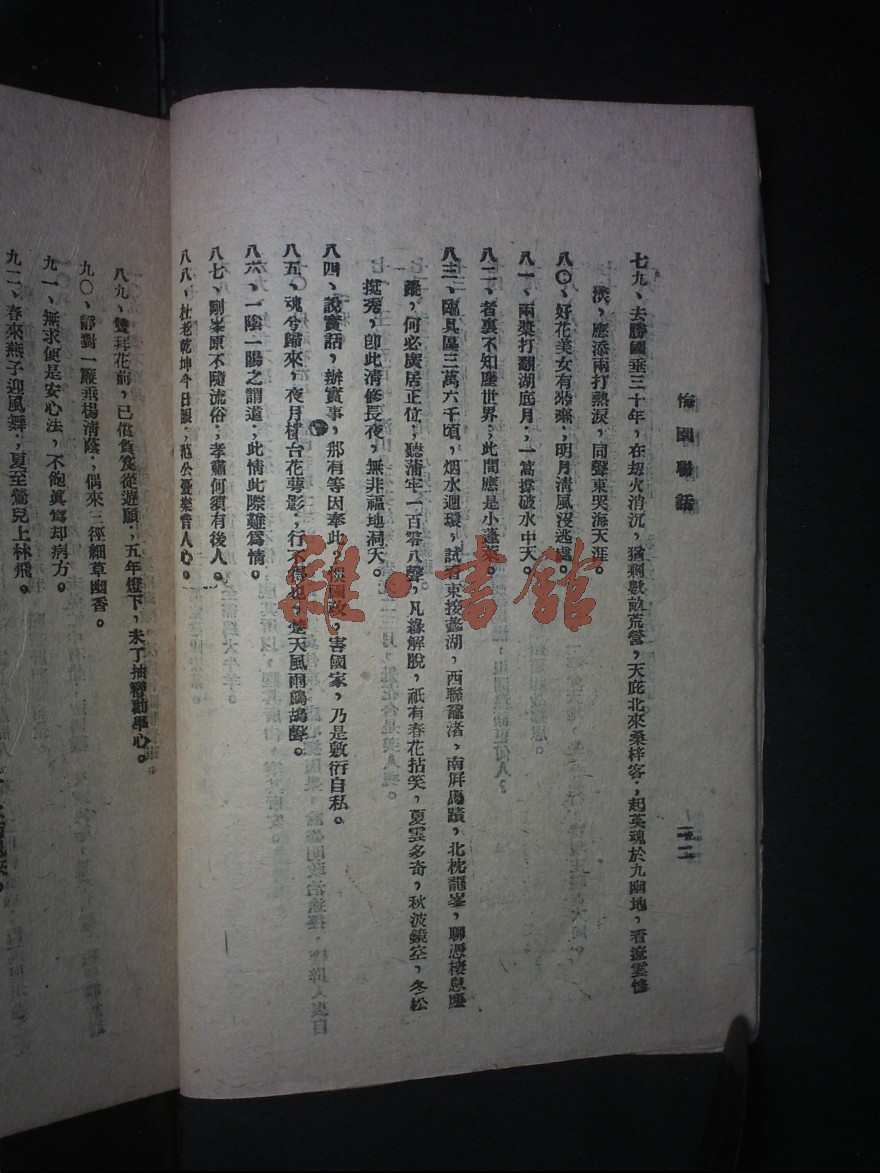 悔園聯話
二二
七九、去勝國垂三十年,在劫火消沉,猶剩數畝荒營,天庇北來桑梓客;起英魂於九幽地,看遼雲慘
淡,應添雨打熱淚,同聲東哭海天涯。
八〇、好花美女有時漸;明月清風沒逃處。
八一、兩槳打翻湖底月;一篙撐破水中天。
八二、者裏不知塵世界;此間應是小蓬萊。
八三、臨具區三萬六千頃,烟水迴環,試看東接蠡湖,西聯黿渚,南屏馬蹟,北枕龍峯,聊憑棲息塵
蹤,何必廣居正位;聽蒲牢一百零八聲,凡緣解脫,祇有春花拈笑,夏雲多奇,秋波鏡空,冬松
挺秀,卽此清修長夜,無非福地洞天。
八四、說實話,辦實事,那有等因奉此;誤國政,害國家,乃是敷衍自私。
八五、魂兮歸來,夜月樓台花萼影;行不得也,楚天風雨鷓鴣聲。
八六、一陰一陽之謂道;此情此際難爲情。
八七、剛峯原不隨流俗;孝肅何須有後人。
八八、杜老乾坤今日眼;范公憂樂昔人心。
八九、雙拜花前,已償負笈從遊願;五年燈下,未了抽簪勸學心。
九〇、靜對一簾垂楊清蔭;偶來三徑細草幽香。
九一、無求便是安心法,不飽眞爲却病方。
九二、春來燕子迎風舞;夏至鶯兒上林飛。
雜·書館